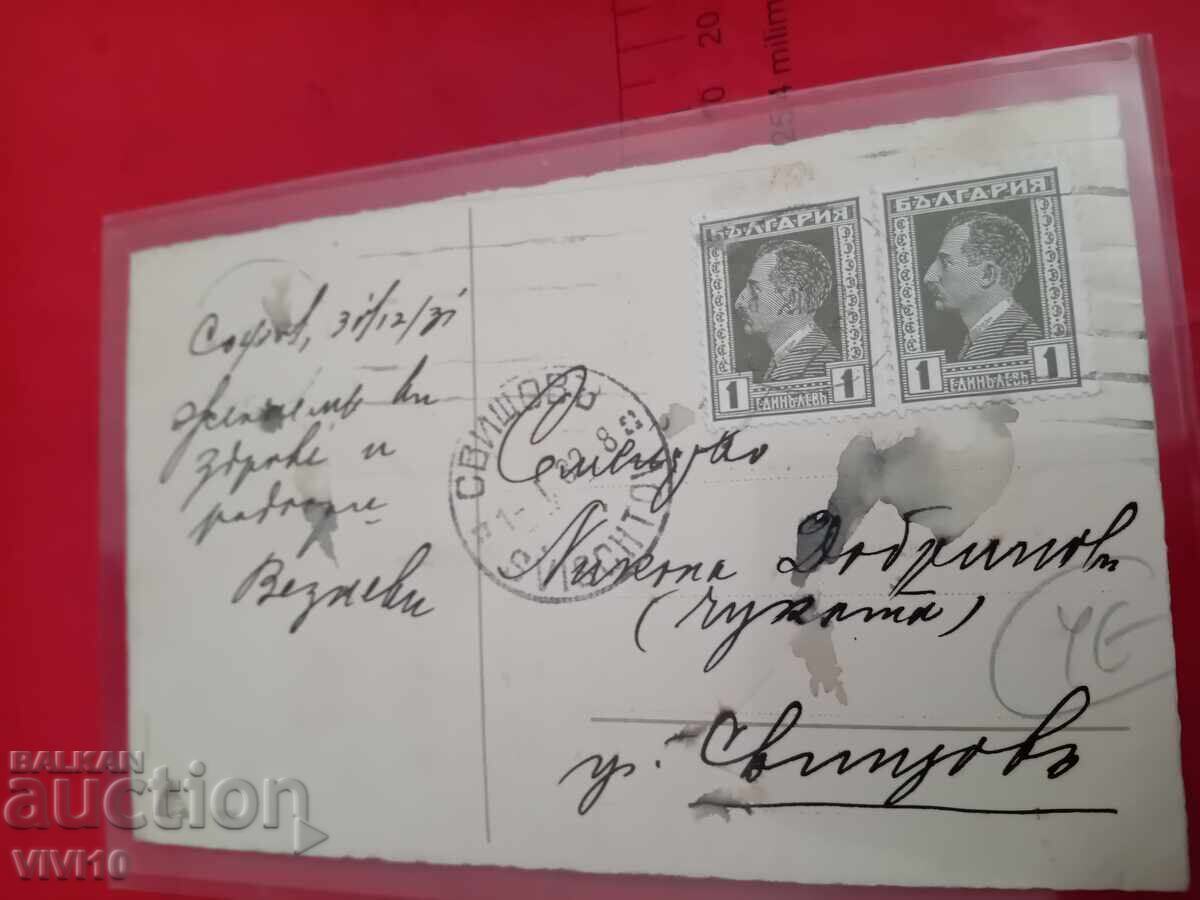 20
10
25,4 milim
БЪЛГАРИЯ
1 ЕДИНЪ ЛЕВЪ 1
БЪЛГАРИЯ
1 ЕДИНЪ ЛЕВЪ 1
СВИЩОВЪ
SVICHTOV
София, 31/12/31
Желаемъ ви
здраве и
радости
Везневи
Семейство
Никола Добринови
(Чуката)
гр. Свищовъ
4E
BALKAN
auction
VIVI10